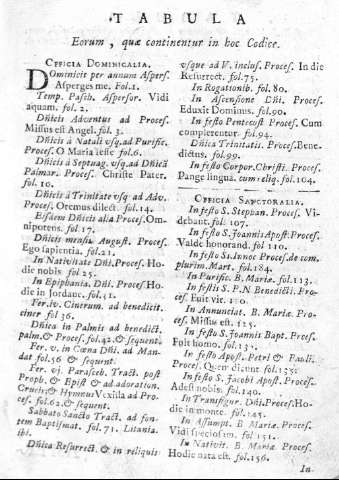 TABULA
Eorum, quæ continentur in hoc Codice.
OFFICIA DOMINICALIA.
Dominicis per annum Aspers.
Asperges me. Fol.1.
Temp. Pasch. Aspersor. Vidi
aquam. fol.2.
Dñicis Adventus ad Proces.
Missus est Angel. fol.3.
Dñicis à Natali usq, ad Purific.
Proces. O Maria Iesse fol.6.
Dñicis à Septuag. usq, ad Dñicã
Palmar. Proces. Christe Pater.
fol.10.
Dñicis à Trinitate usq, ad Adv.
Proces. Oremus dilect. fol.14.
Eisdem Dñicis alia Proces. Om-
nipotens. fol.17.
Dñicis mensis August. Proces.
Ego sapientia. fol.21.
In Nativitate Dñi. Proces. Ho-
die nobis fol.25.
In Epiphania. Dñi. Proces Ho-
die in Jordane. fol.31.
Fer. iv. Cinerum. ad benedicit.
einer fol 36.
Dñica in Palmis ad benedict.
palm. & Proces. fol.42. & sequent.
Fer. v. in Cœna Dñi. ad Man-
dat fol.56 & sequent.
Fer. vj. Parasceb. Tract. post
Proph. & Epist & ad adoration.
Crucis, & Hymnus Vexilla ad Pro-
ces. fol.62. & sequent.
Sabbato Sancto Tract. ad fon-
tem Baptismat. fol.71. Litania.
ibi.
Dñica Resurrect. & in reliquis
usque ad V. inclus. Proces. In die
Resurrect. fol.75.
In Rogationib. fol.80.
In Ascensione Dñi. Proces.
Eduxit Dominus. fol.90.
In festo Pentecost Proces. Cum
complerentur. fol.94.
Dñica Trinitatis. Proces. Bene-
dictus. fol.99.
In festo Corpor. Christi. Proces.
Pange lingua. cum relig. fol.104.
OFFICIA SANCTORALIA.
In festo S. Stephan. Proces. Vi-
debant. fol. 107.
In festo S. Joannis Apost. Proces.
Valde honorand. fol 110.
In festo Ss. Innoc Proces. de com.
plurim. Mart. fol.184.
In Purific. B. Mariæ. fol.113.
In festis S. P. N. Benedicti. Pro-
ces. Fuit vir. 120.
In Annunciat. B. Mariæ Pro-
ces. Missus est. 125.
In festo S. Joannis Bapt. Proces.
Fuit homo. fol.131.
In festo Apost. Petri & Pauli.
Proces. Quem dicunt fol.135.
In festo S. Jacobi Apost. Proces.
Adest nobis. fol.140.
In Transfigur. Dñi. Proces. Ho-
die in monte. fol.145.
In Assumpt. B. Mariæ Proces.
Vidi speciosam. fol.151.
In Nativit. B. Mariæ Proces.
Hodie nata est. fol.156.
In